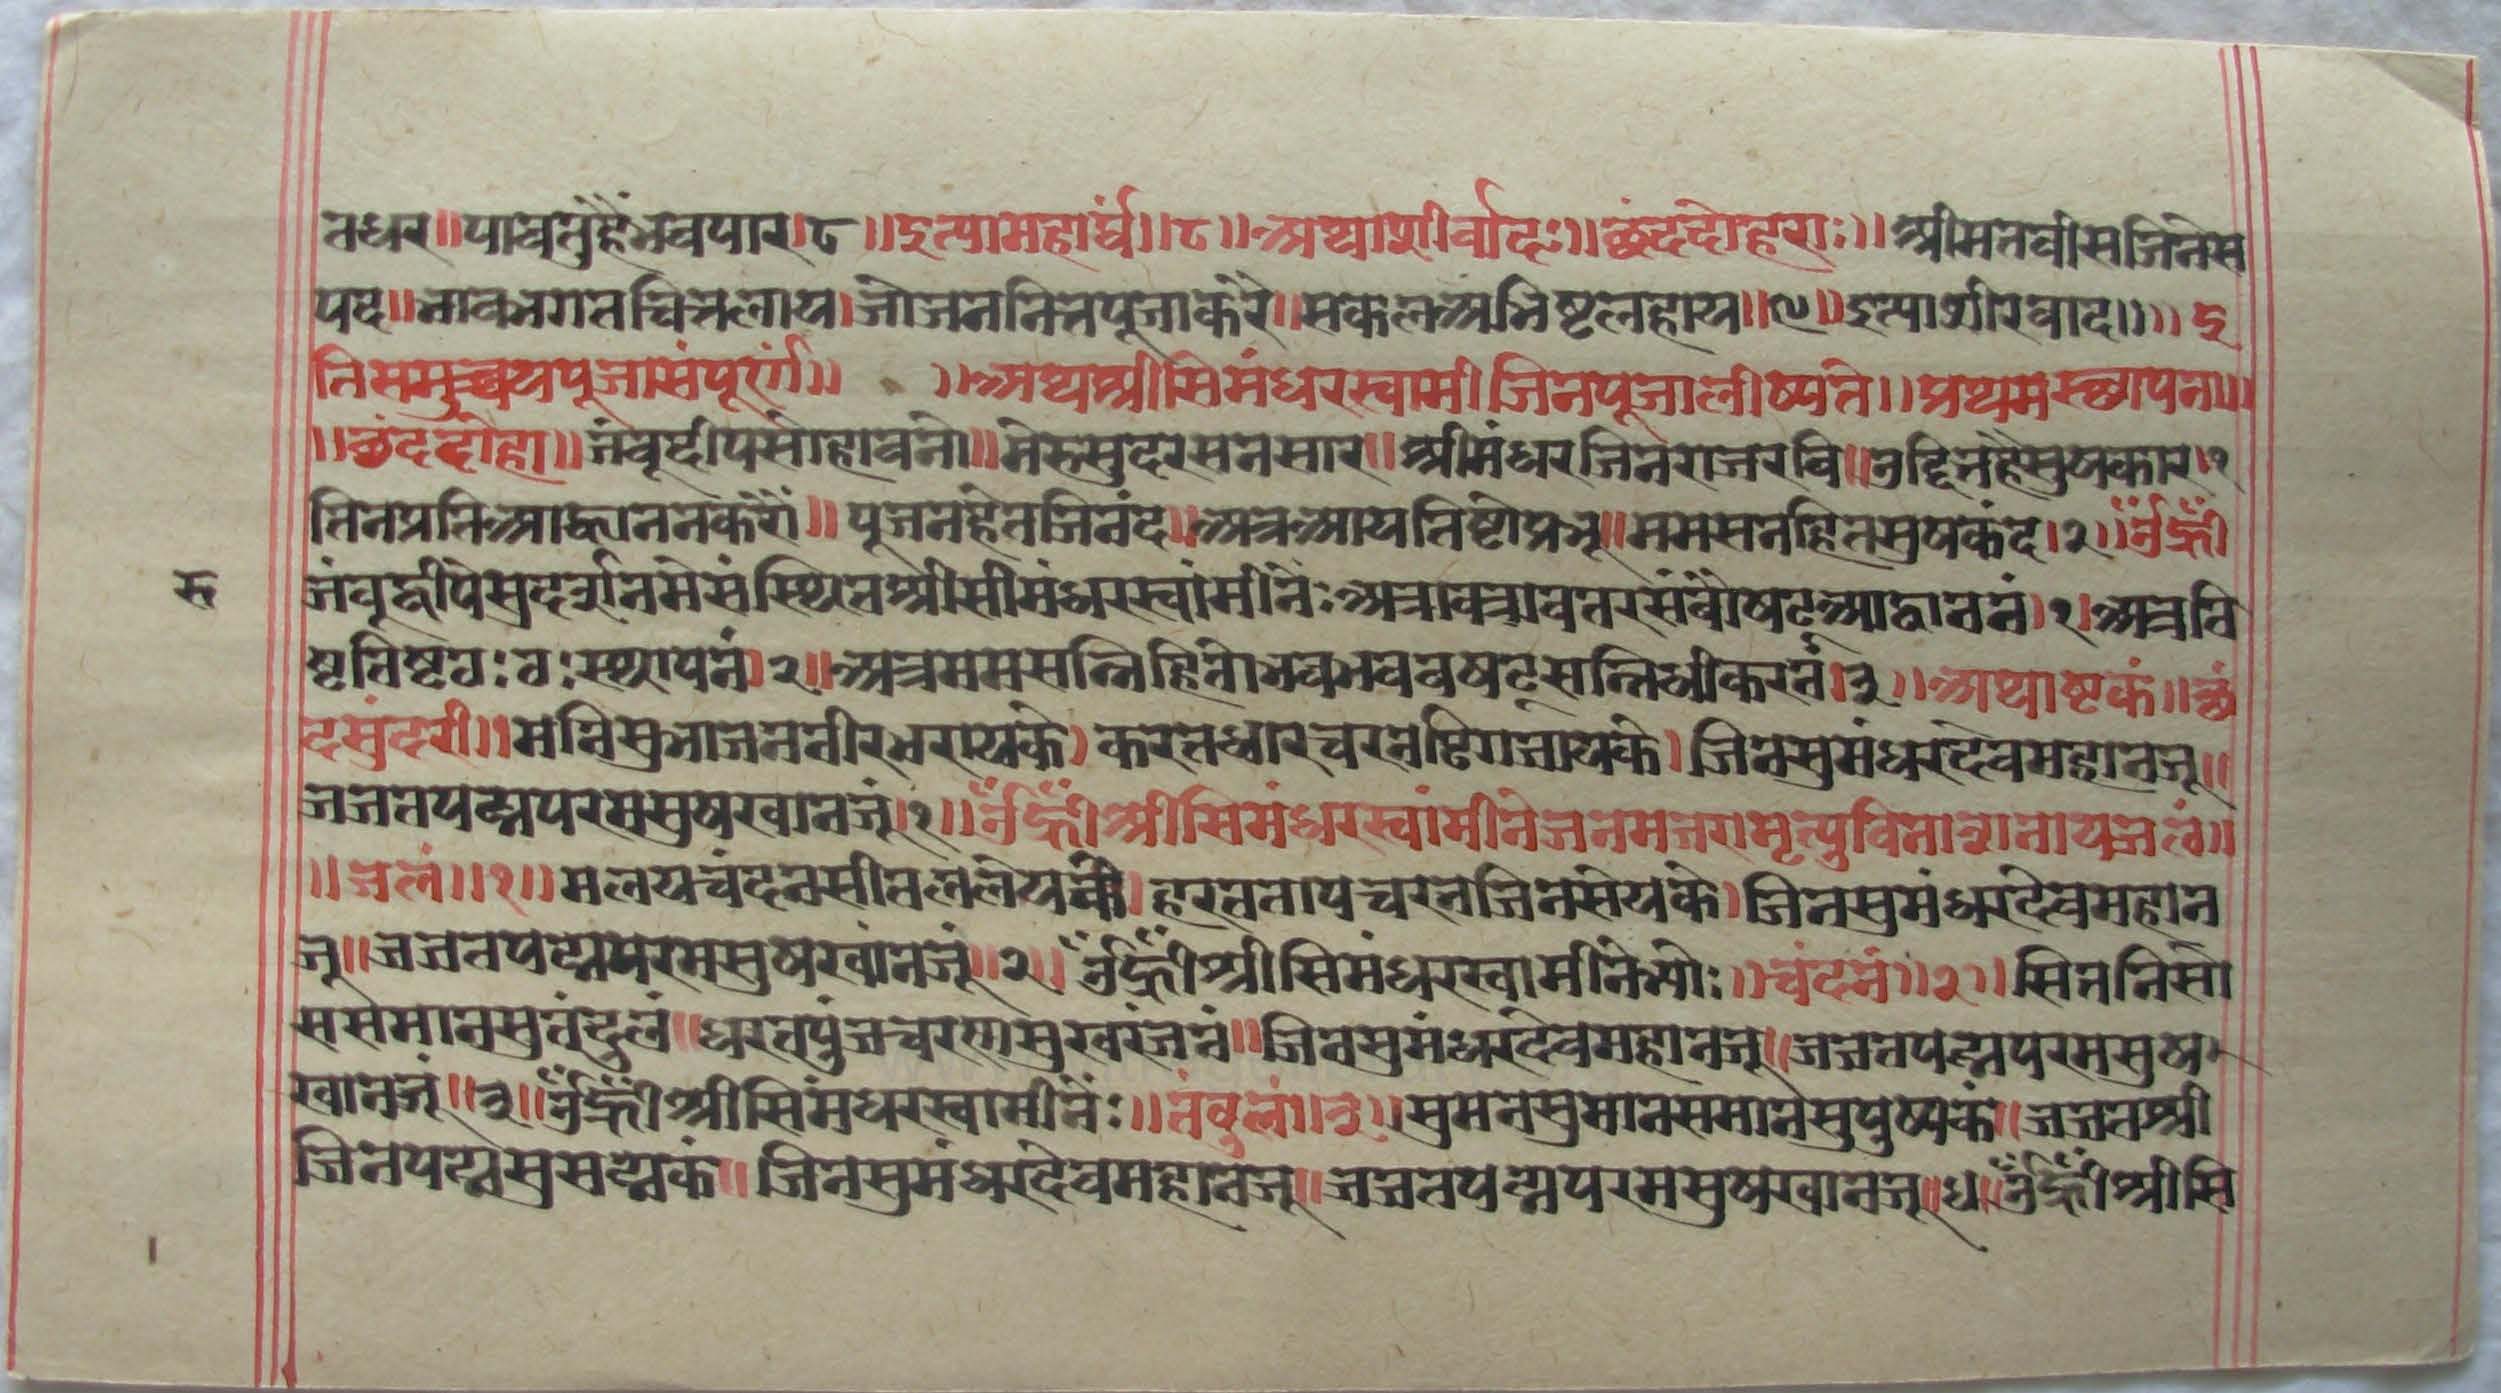 तधर॥पावतुहैंभवपार।८॥इत्यामहार्घं॥८॥अथाशीर्वादः॥छंददोहराः॥श्रीमतवीसजिनेस
पद॥भावभगतचित्तलाय।जोजननित्तपूजाकरै॥सकलअभिष्टलहाय॥९॥इत्याशीरवाद॥॥इ
तिसमुच्चयपूजासंपूर्णं॥ ॥अथश्रीसिमंधरस्वामीजिनपूजालीष्यते॥प्रथमस्थापना॥
॥छंददोहा॥जंवूदीपसोहावनो॥मेरुसुदरसनसार॥श्रीमंधरजिनराजरवि॥उद्दितहैसुषकार।१
तिनप्रतिआह्वाननकरौं॥पूजनहेतजिनंद॥अत्रआयतिष्टोप्रभू॥ममसनहितसुषकंद।२॥ॐह्रीँ
जंवूद्वीपेसुदर्शनमेसंस्थितश्रीसीमंधरस्वांमीनेः अत्रावत्रावतरसंवौषटआह्वाननं।१।अत्रति
ष्टतिष्टठःठःस्थापनं।२॥अत्रममसन्निहितोभवभववषट्सन्निधीकरनं।३॥अथाष्टकं॥छं
दसुंदरी॥मनिसुभाजननीरभरायके।करतधारचरनढिगजायके।जिनसुमंधरदेवमहानजू॥
जजतपद्मपरमसुषखानजूं।१॥ॐह्रीँश्रीसिमंधरस्वांमीनेजनमजरामृत्युविनाशनायजलं॥
॥जलं॥१॥मलयचंदनसीतललेयकै।हरनतापचरनजिनसेयके।जिनसुमंधरदेवमहान
जू॥जजतपद्मपरमसुषखांनजूं॥२॥ॐह्रीँश्रीसिमंधरस्वामीनेभ्योः॥चंदनं॥२॥सितनिसो
ससमानसुतंदुलं॥धरतपुंजचरणसुखरंजनं॥जिनसुमंधरदेवमहानजू॥जजतपद्मपरमसुष
खानजूं॥३॥ॐह्रीँश्रीसिमंधरस्वामीनेंः॥तंवुलं॥३॥सुमनसुमानसमानसुपुष्पकं॥जजतश्री
जिनपद्मसुसद्मकं॥जिनसुमंधरदेवमहानजू॥जजतपद्मपरमसुषखानजू॥४॥ॐह्रीँश्रीसि